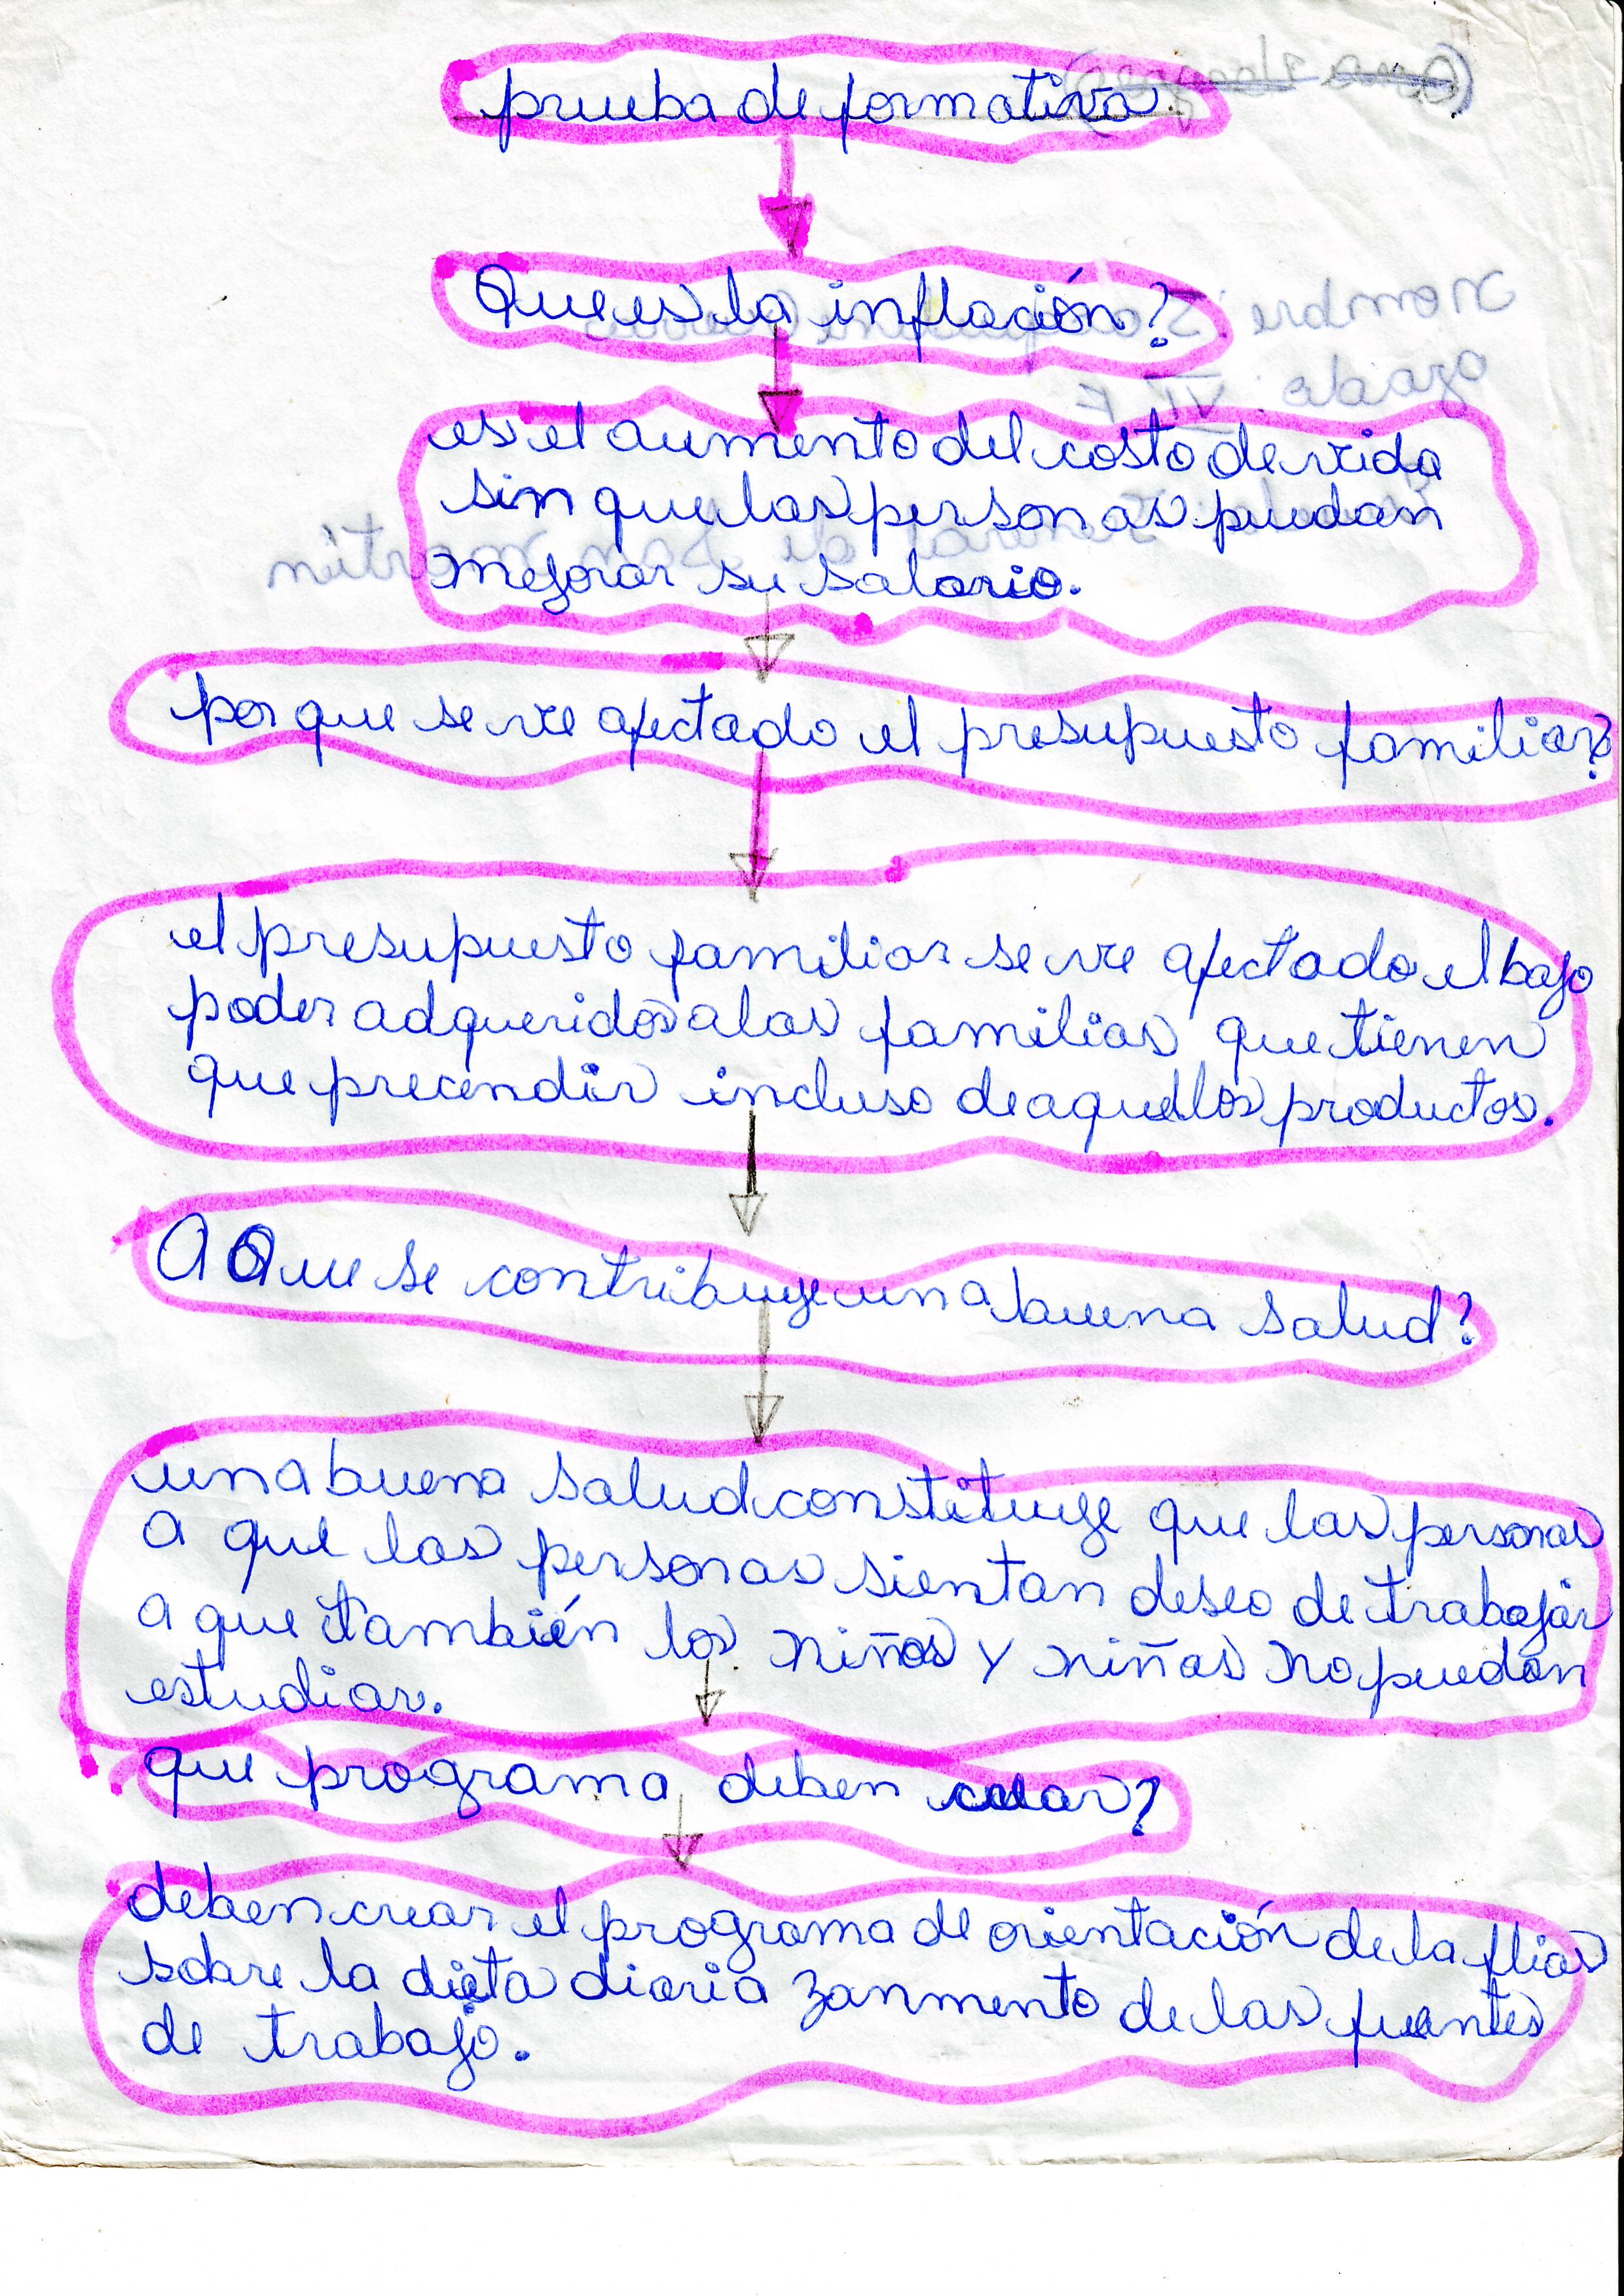 prueba de formativa.
Que es la inflación?
es el aumento del costo de vida
sin que las personas puedan
mejorar su salario.
por que se ve afectado el presupuesto familiar?
el presupuesto familiar se ve afectado el bajo
poder adqueridos a las familias que tienen
que precendir incluso de aquellos productos.
A Que se contribuye una buena salud?
una buena salud constituye que las personas
a que las personas sientan deseo de trabajar
a que también los niños y niñas no puedan
estudiar.
que programa deben
deben crear el programa de orientación de la flias
sobre la dieta diaria zanmento de las fuentes
de trabajo.
nombre:
grado: VII F
de San martín